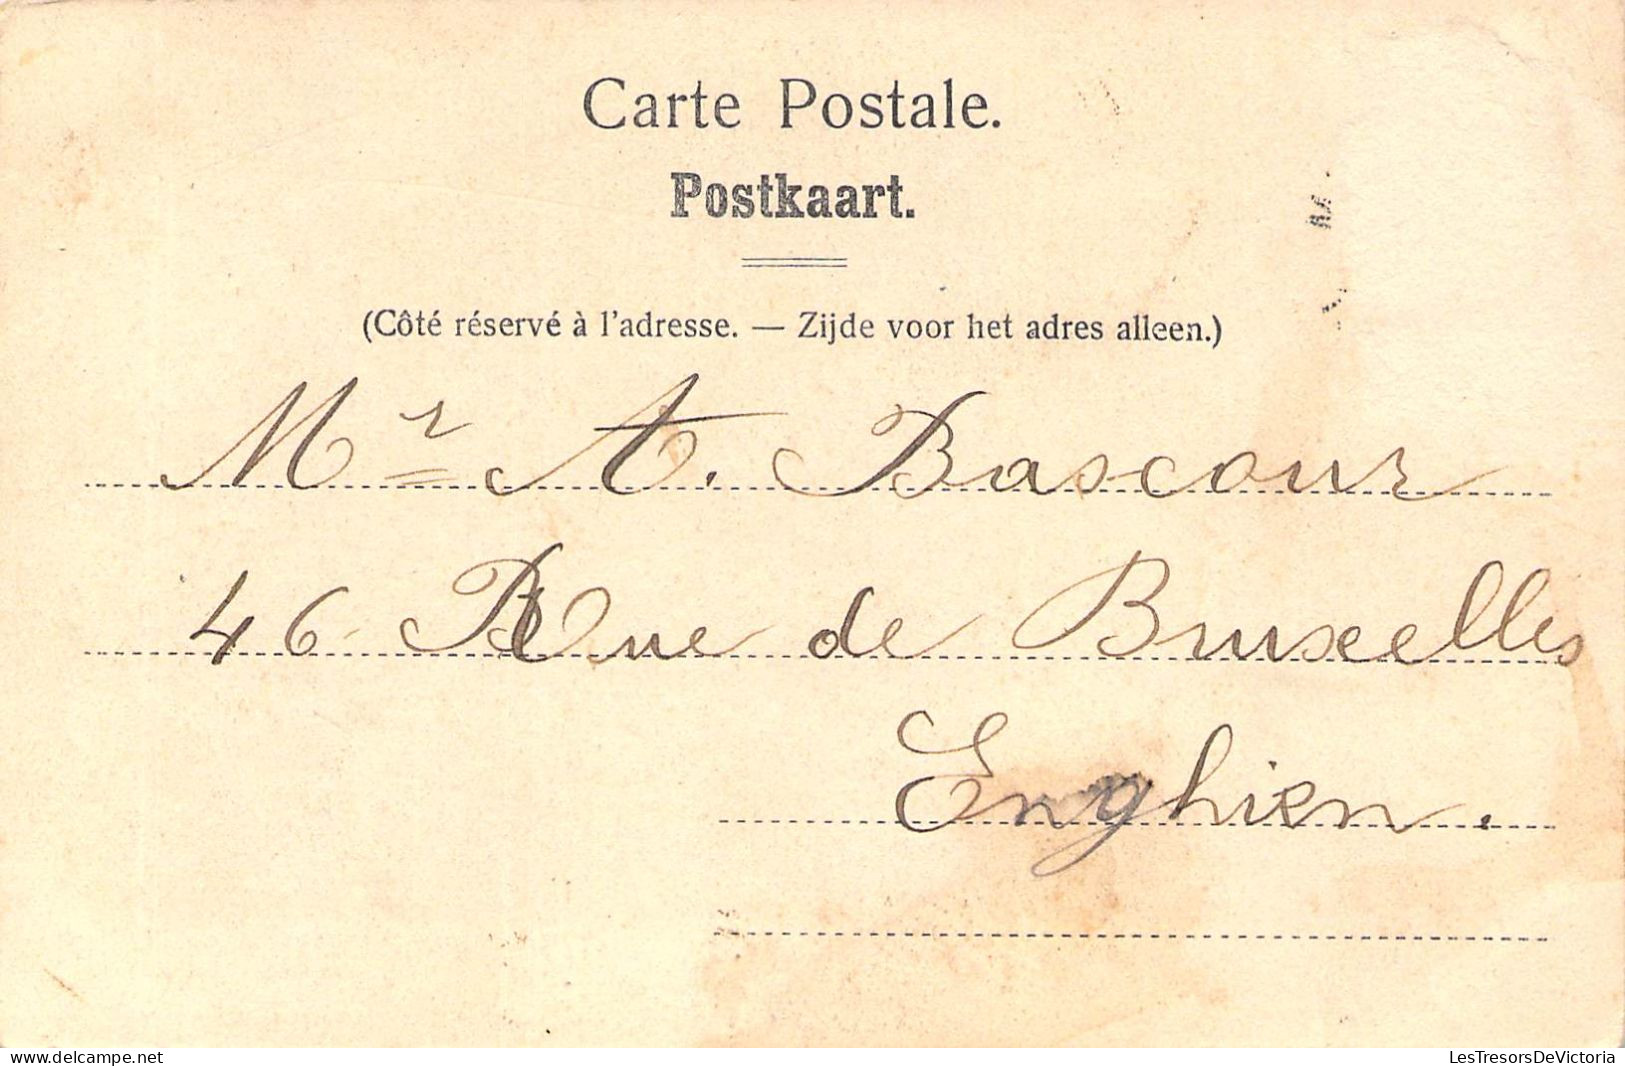 Carte Postale.
Postkaart.
(Côté réservé à l'adresse. — Zijde voor het adres alleen.)
Mr A. Bascour
46 Rue de Bruxelles
Enghien.
www.delcampe.net
LesTresorsDeVictoria